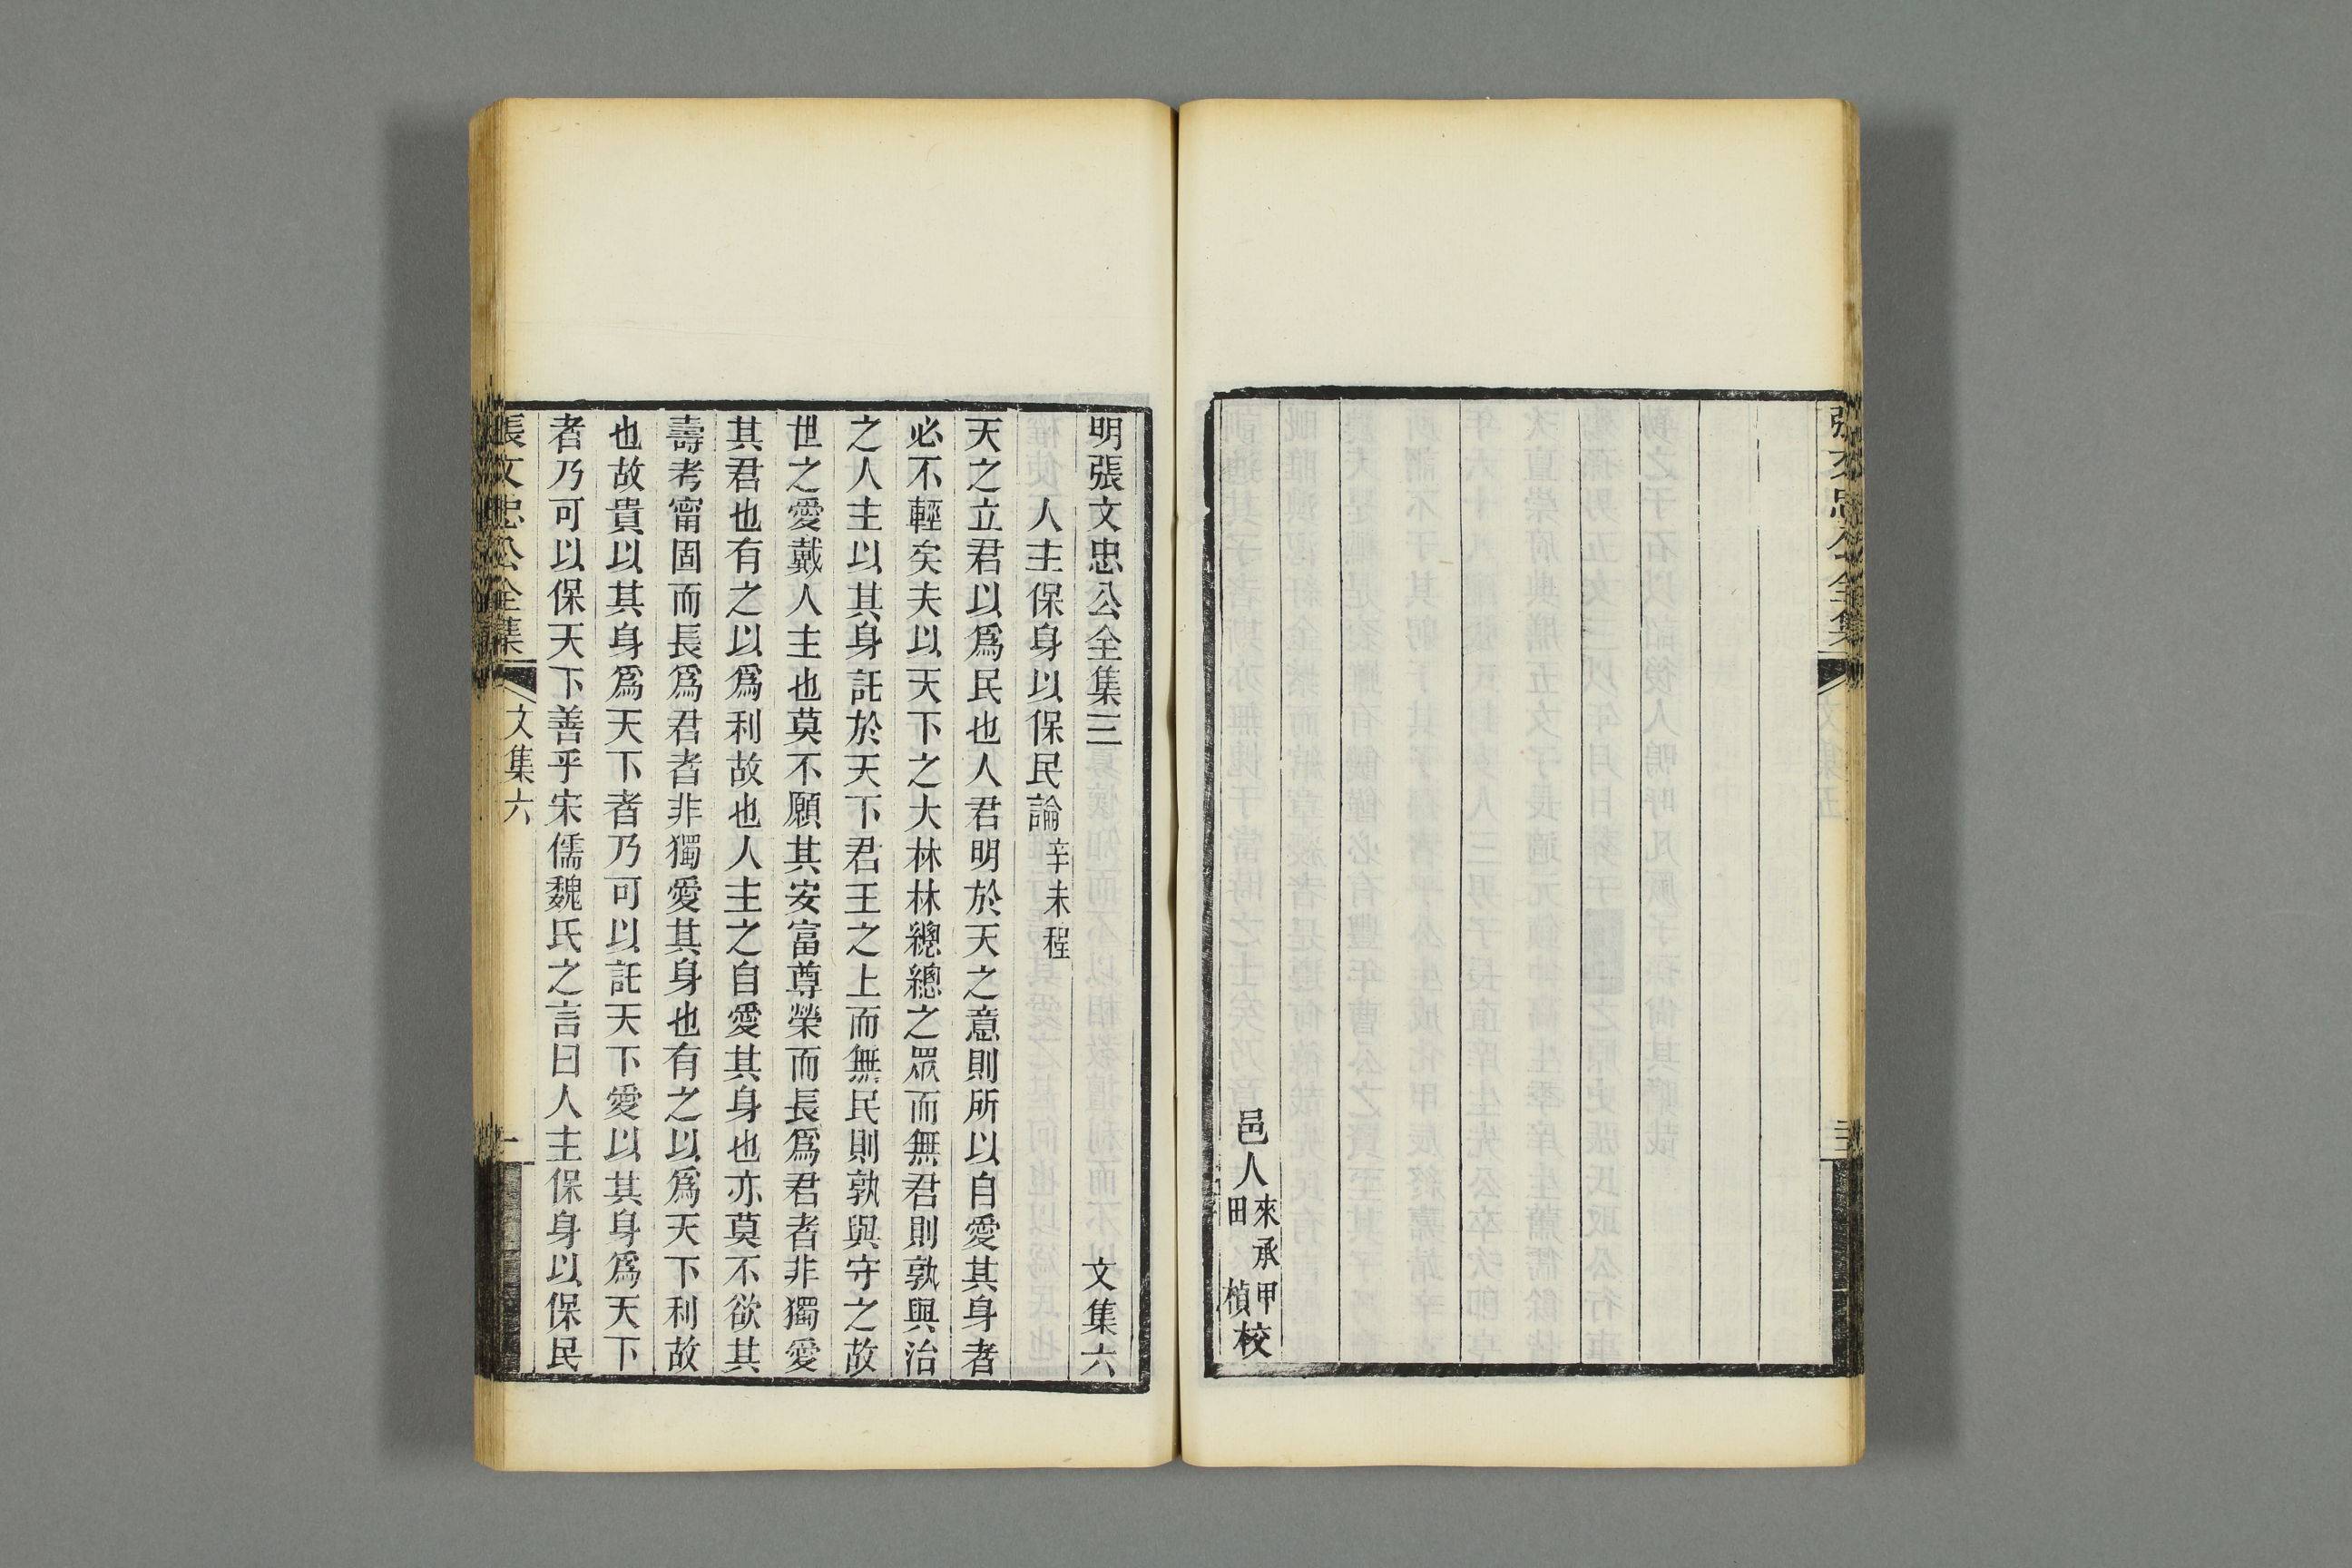 張文忠公全集
邑人來承甲田楨校
明張文忠公全集三 文集六
人主保身以保民論辛未程
天之立君以爲民也人君明於天之意則所以自愛其身者
必不輕矣夫以天下之大林林總總之眾而無君則孰與治
之人主以其身託於天下君王之上而無民則孰與守之故
世之愛戴人主也莫不願其安富尊榮而長爲君者非獨愛
其君也有之以爲利故也人主之自愛其身也亦莫不欲其
壽考甯固而長爲君者非獨愛其身也有之以爲天下利故
也故貴以其身爲天下者乃可以託天下愛以其身爲天下
者乃可以保天下善乎宋儒魏氏之言曰人主保身以保民
張文忠公全集 文集六 一